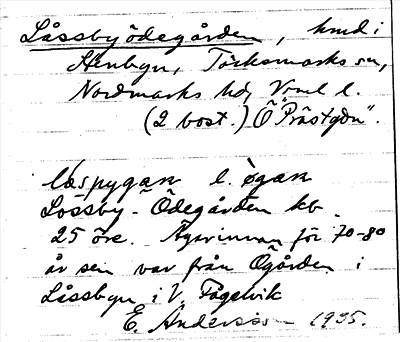 Låssbyödegården, hmd i
Henbyn, Töcksmarks sn,
Nordmarks hd, Vrml l.
(2 bost.) Ö "Prästgdn".
læspygan l. øgan
Lössby-Ödegården kb
25 öre. Ägarinnan för 70-80
år sen var från Ögården i
Låssbyn i V. Fågelvik
E. Andersson 1935.